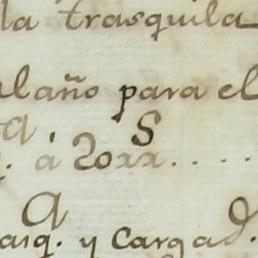 la trasquila
laño para el
á 20xx.....
asq. y Cargad.